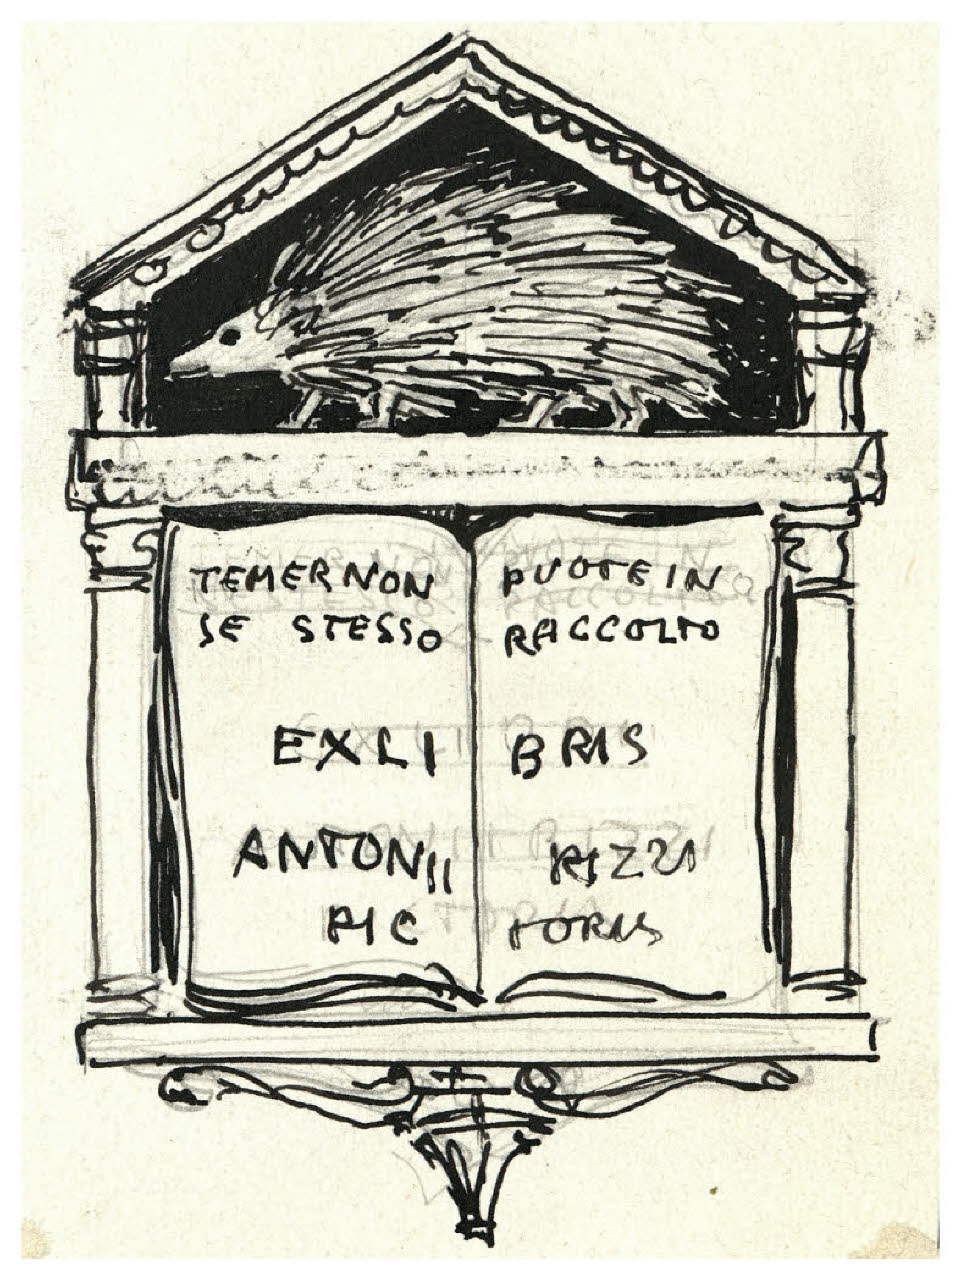 TEMER NON PUOTE IN
SE STESSO RACCOLTO
EXLI BRIS
ANTONII RIZZI
PIC TORIS